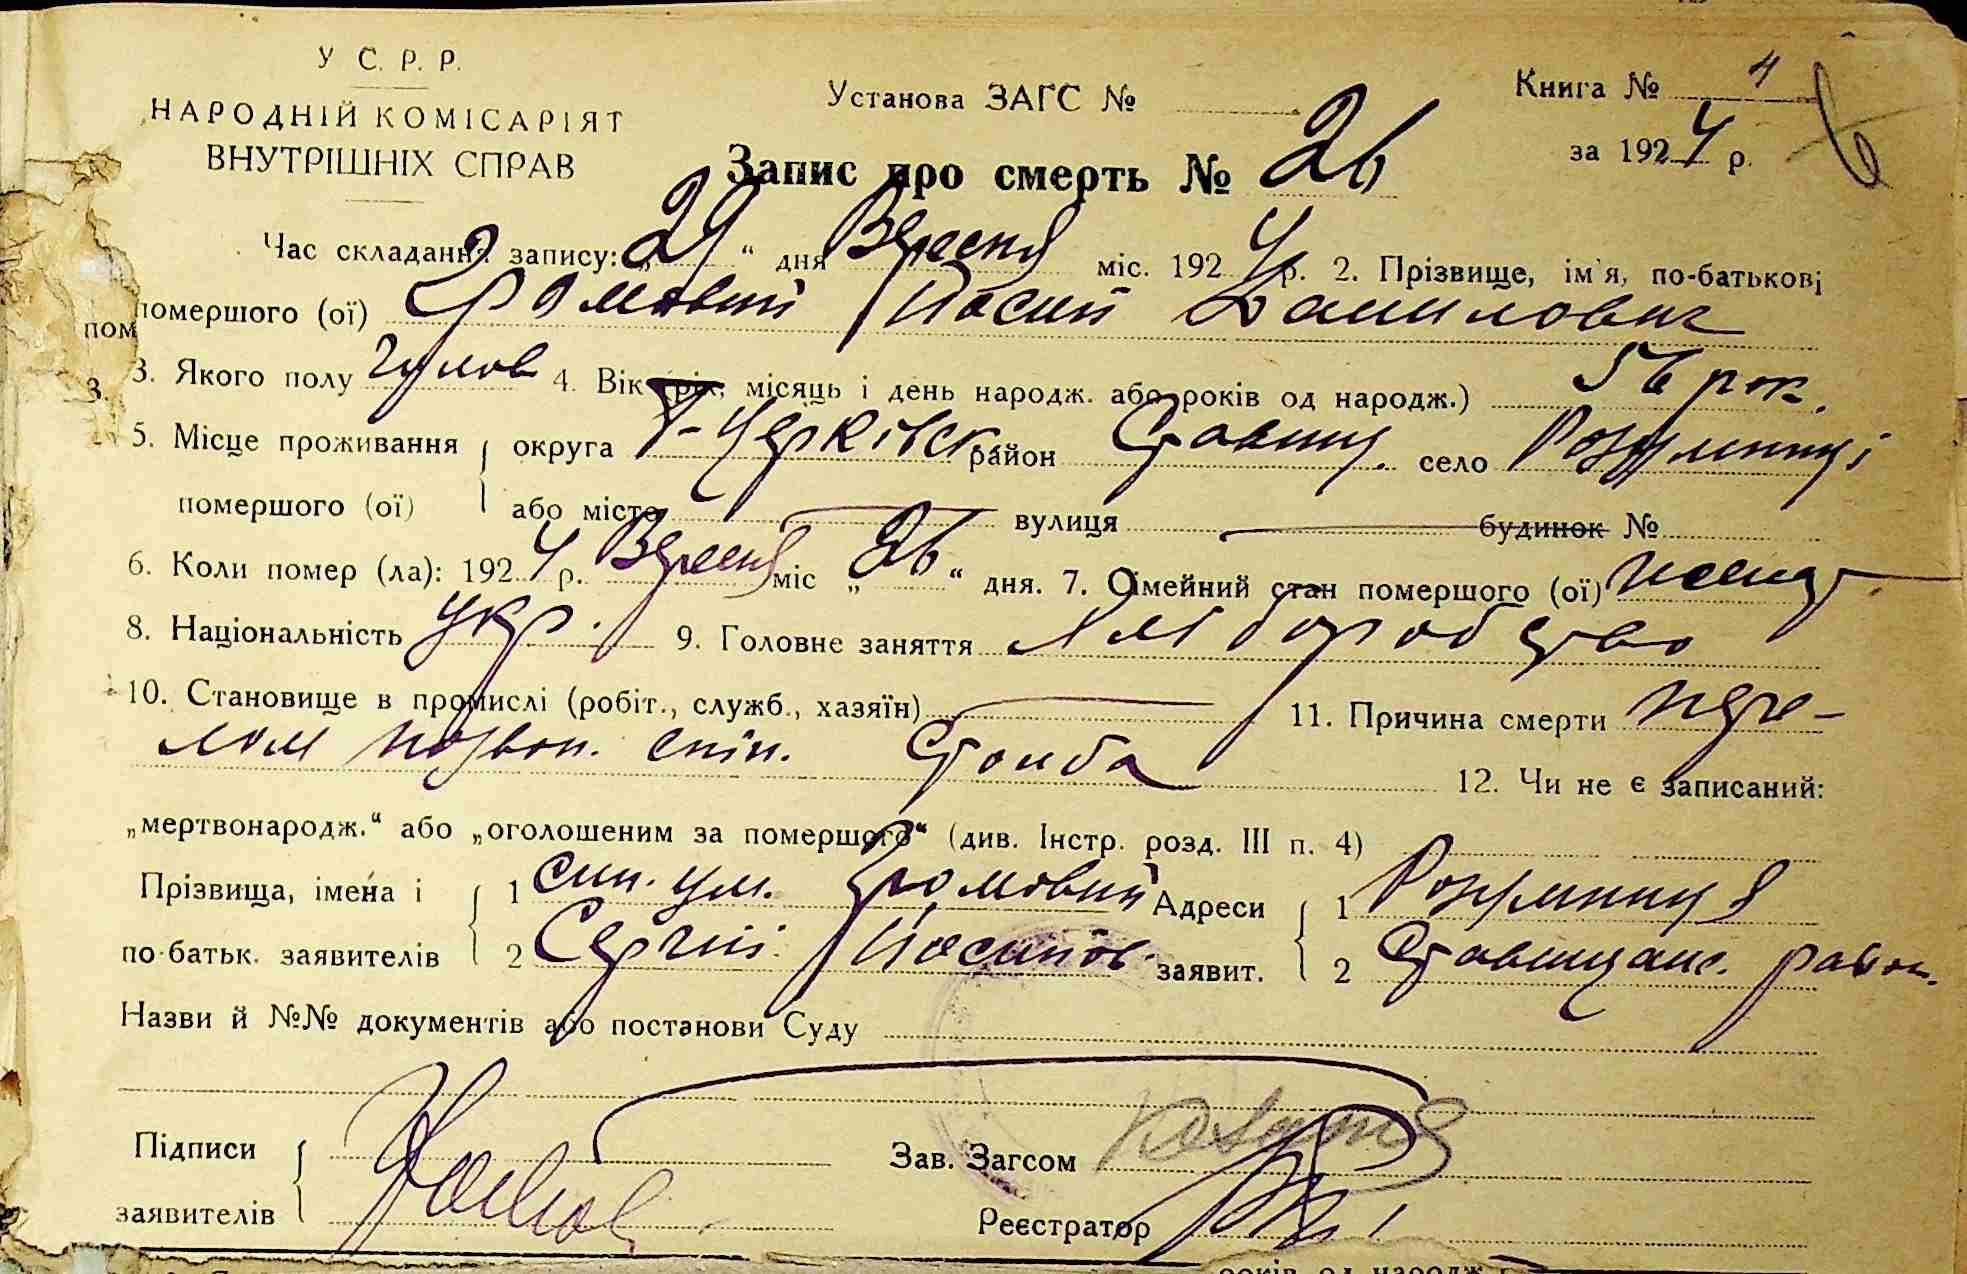 У С. Р. Р.
НАРОДНІЙ КОМІСАРІЯТ
ВНУТРІШНІХ СПРАВ
Установа ЗАГС №
Книга № 4
за 1924 р.
Запис про смерть № 26
Час складання запису: „29“ дня Вересня міс. 1924 р. 2. Прізвище, ім'я, по-батькові
помершого (ої) Громовий Йосип Данилович
пом
3. Якого полу чулов 4. Вік (рік, місяць і день народж. або років од народж.) 56 рок.
3.
5. Місце проживання округа Б-Церківськ район Ставищ. село Розумниці
помершого (ої) або місто вулиця будинок №
6. Коли помер (ла): 1924 р. Вересня міс „26“ дня. 7. Сімейний стан помершого (ої) женат
8. Національність укр. 9. Головне заняття хліборобство
10. Становище в промислі (робіт., служб., хазяїн) 11. Причина смерти пере-
лом позвон. спін. столба 12. Чи не є записаний:
„мертвонародж.“ або „оголошеним за помершого“ (див. Інстр. розд. III п. 4)
Прізвища, імена і 1 син. ум. Громовий Адреси 1 Розумниця
по-батьк. заявителів 2 Сергій Йосипов. заявит. 2 Ставищанс. район.
Назви й №№ документів або постанови Суду
Підписи
заявителів
Зав. Загсом
Реєстратор
років од народж.